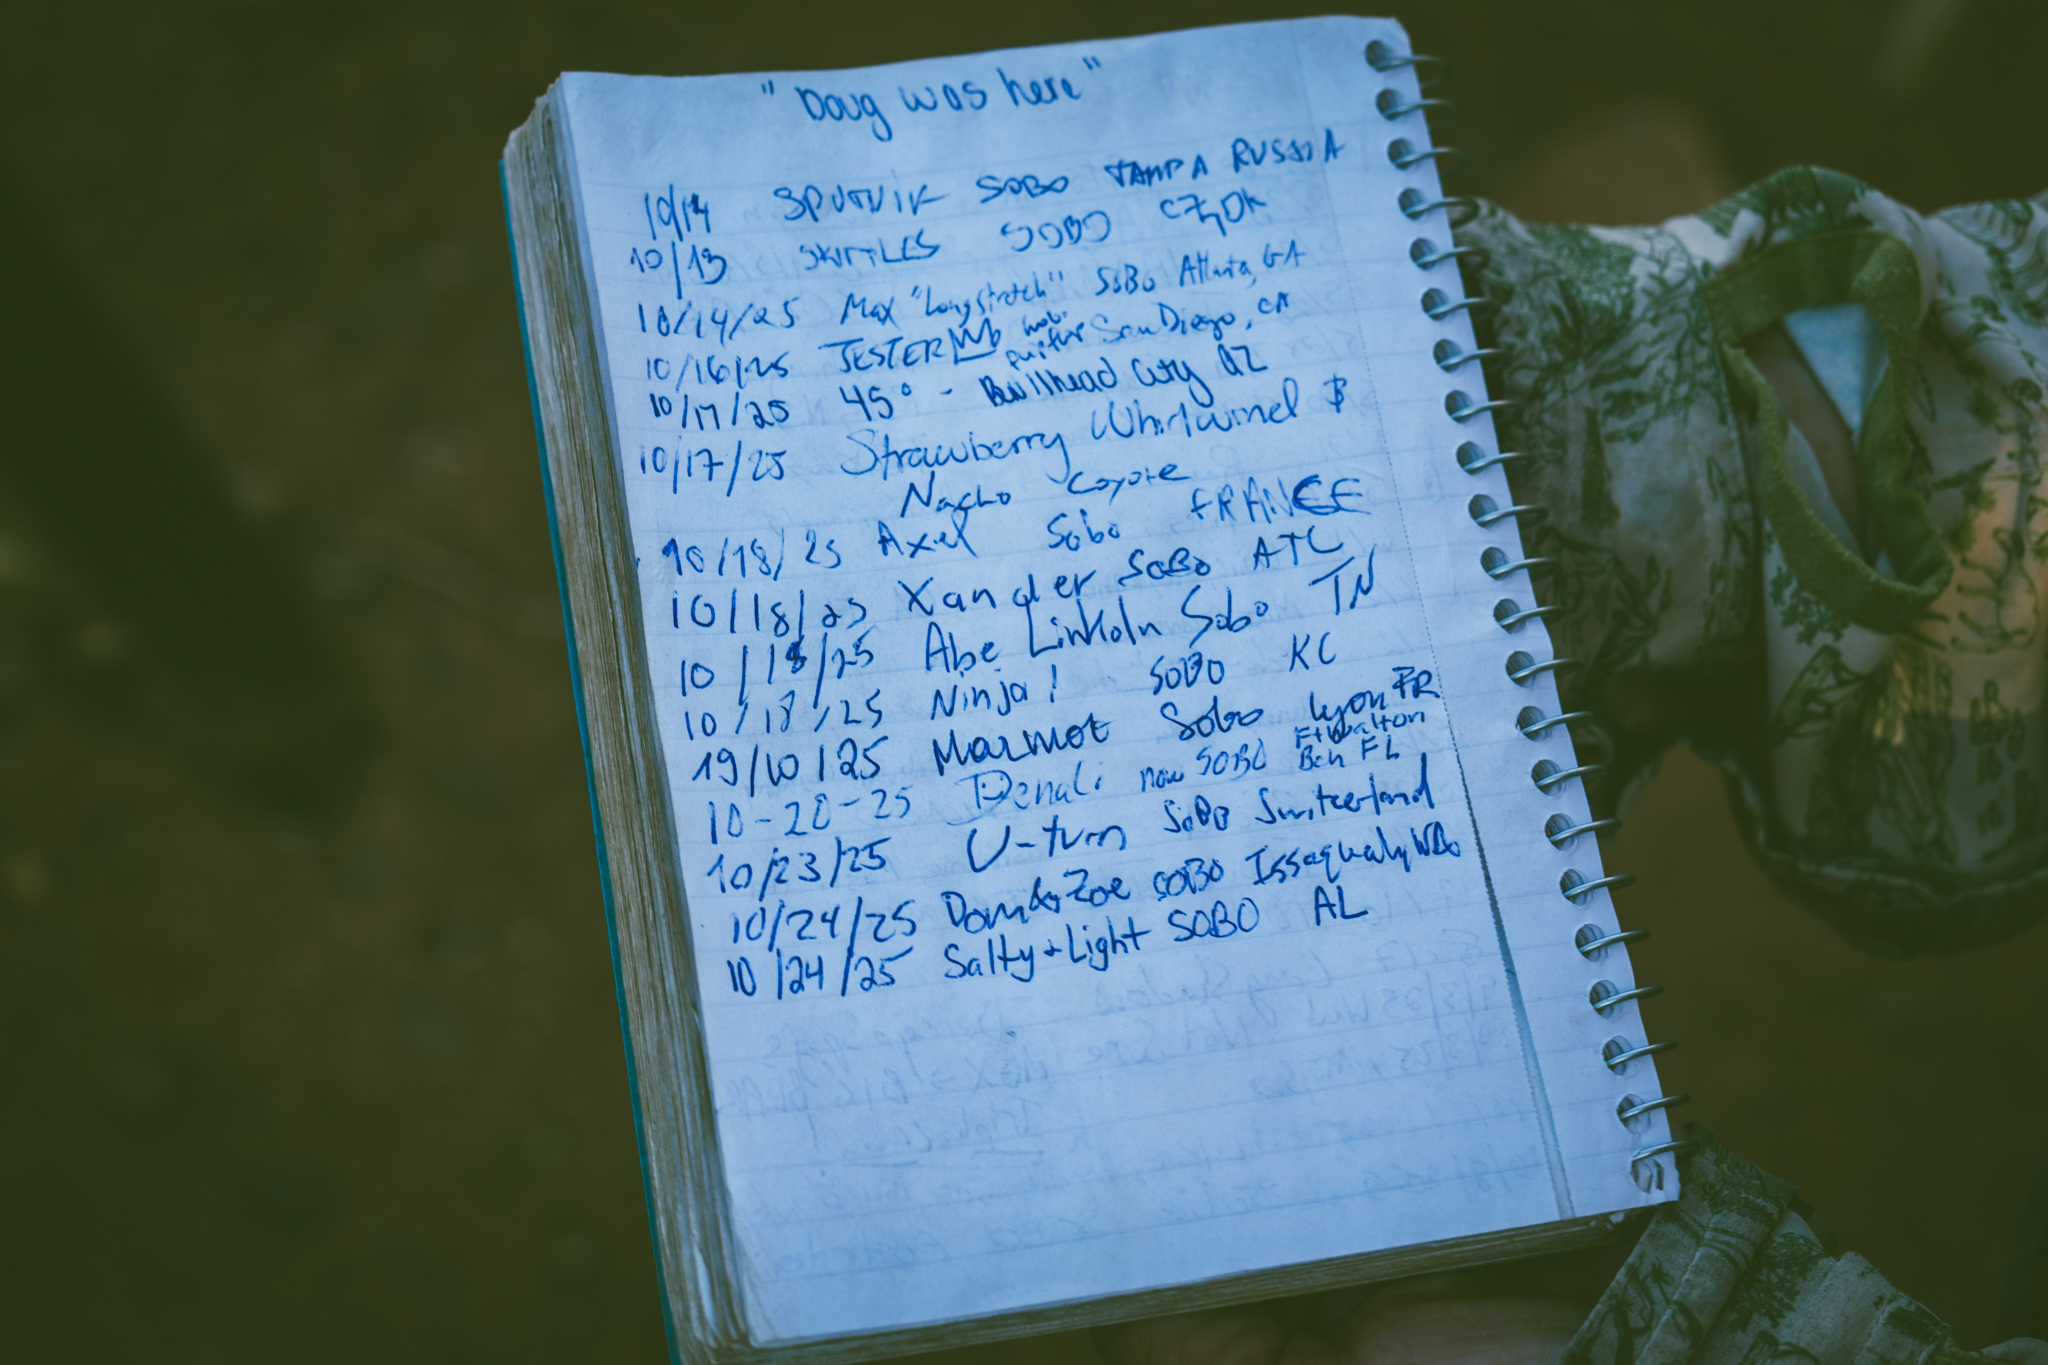 "Doug was here"
10/14 SPUTNIK SOBO TAMPA RUSSIA
10/13 SKITTLES SOBO
10/14/25 Max "Longstretch" SoBo Atlanta, GA
10/16/25 JESTER San Diego, CA
10/17/25 45° - Bullhead City AZ
10/17/25 Strawberry Whirlwind
Nacho Coyote
10/18/25 Axel Sobo FRANCE
10/18/25 Xander SOBO ATL
10/18/25 Abe Linkoln Sobo TN
10/18/25 Ninja! SOBO KC
19/10/25 Marmot Sobo Lyon FR
10-20-25 Denali now SOBO Ft Walton Bch FL
10/23/25 U-turn SoBo Switzerland
10/24/25 Dom & Zoe SOBO Issaquah, WA
10/24/25 Salty + Light SOBO AL